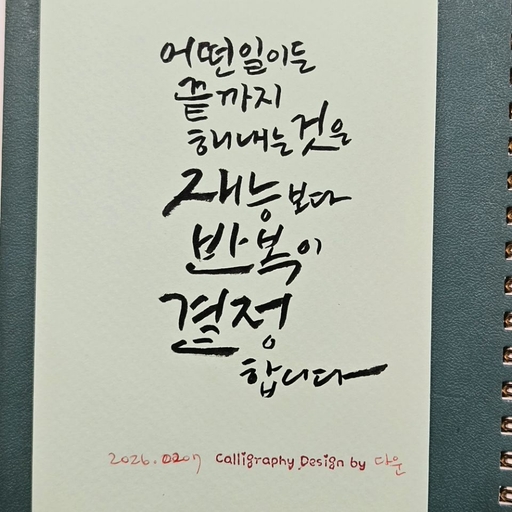 어떤일이든
끝까지
해내는것은
재능보다
반복이
결정
합니다
2026.0207 Calligraphy Design by 다운